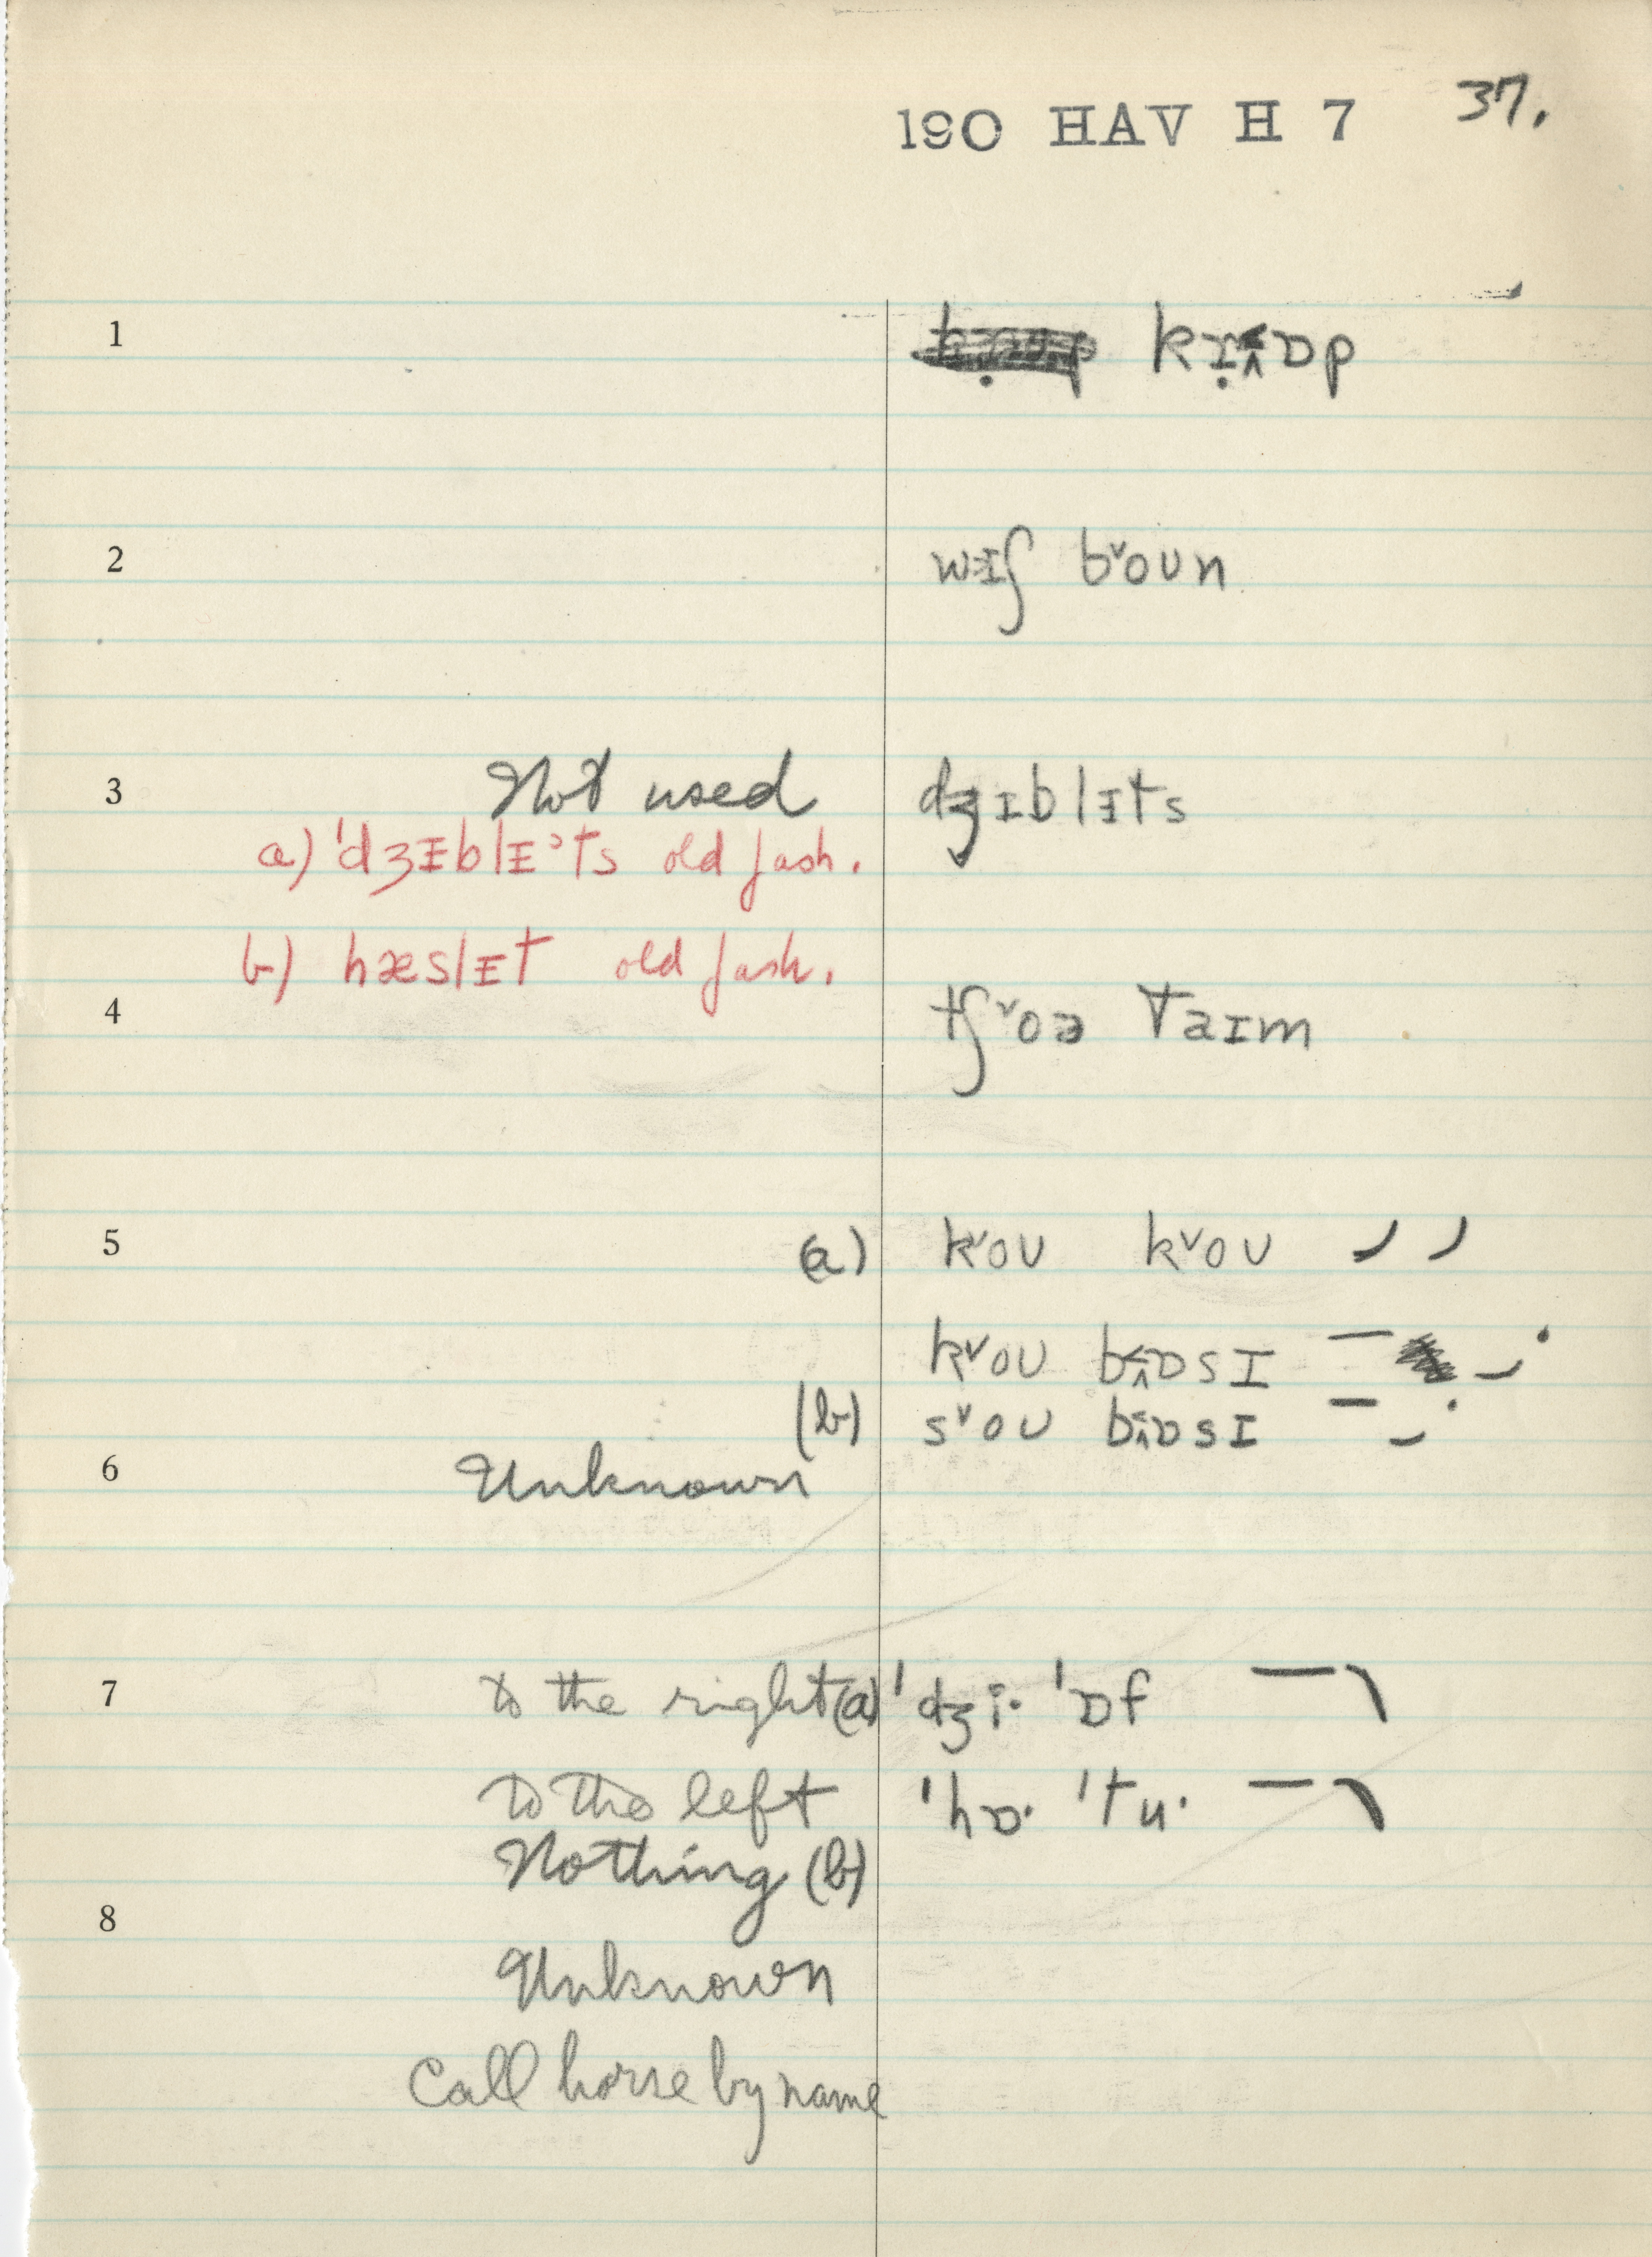 190 HAV H 7 37.
1 kɪ̣ɒp
2 wɪʃ bᵛoʊn
3 Not used dʒɪblɪts
a) ˈdʒɪblɪˀts old fash.
b) hæslɪt old fash.
4 tʃᵛoə taɪm
5 (a) kᵛoʊ kᵛoʊ
kᵛoʊ bɒsɪ
(b) sᵛoʊ bɒsɪ
6 Unknown
7 to the right (a) ˈdʒi· ˈɒf
to the left ˈhɒ· ˈtu·
Nothing (b)
8
Unknown
Call horse by name